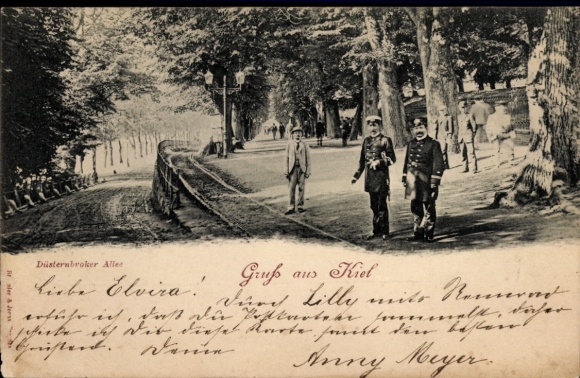 Düsternbroker Allee
Gruß aus Kiel
Liebe Elvira!
Durch Lilly
erfuhr ich, daß du Postkarten sammelst, daher
schicke ich Dir diese Karte mit den besten
Grüßen. Deine
Anny Meyer.